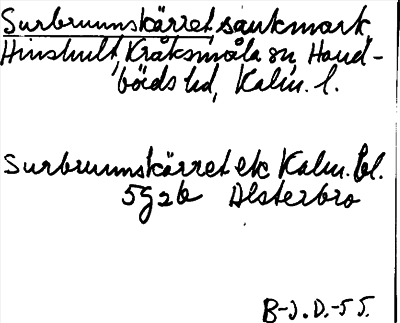 Surbrunnskärret, sankmark,
Hinshult, Kråksmåla sn, Hand-
börds hd, Kalm. l.
Surbrunnskärret ek Kalm. bl.
5g2b Alsterbro
B-J. D.-55.